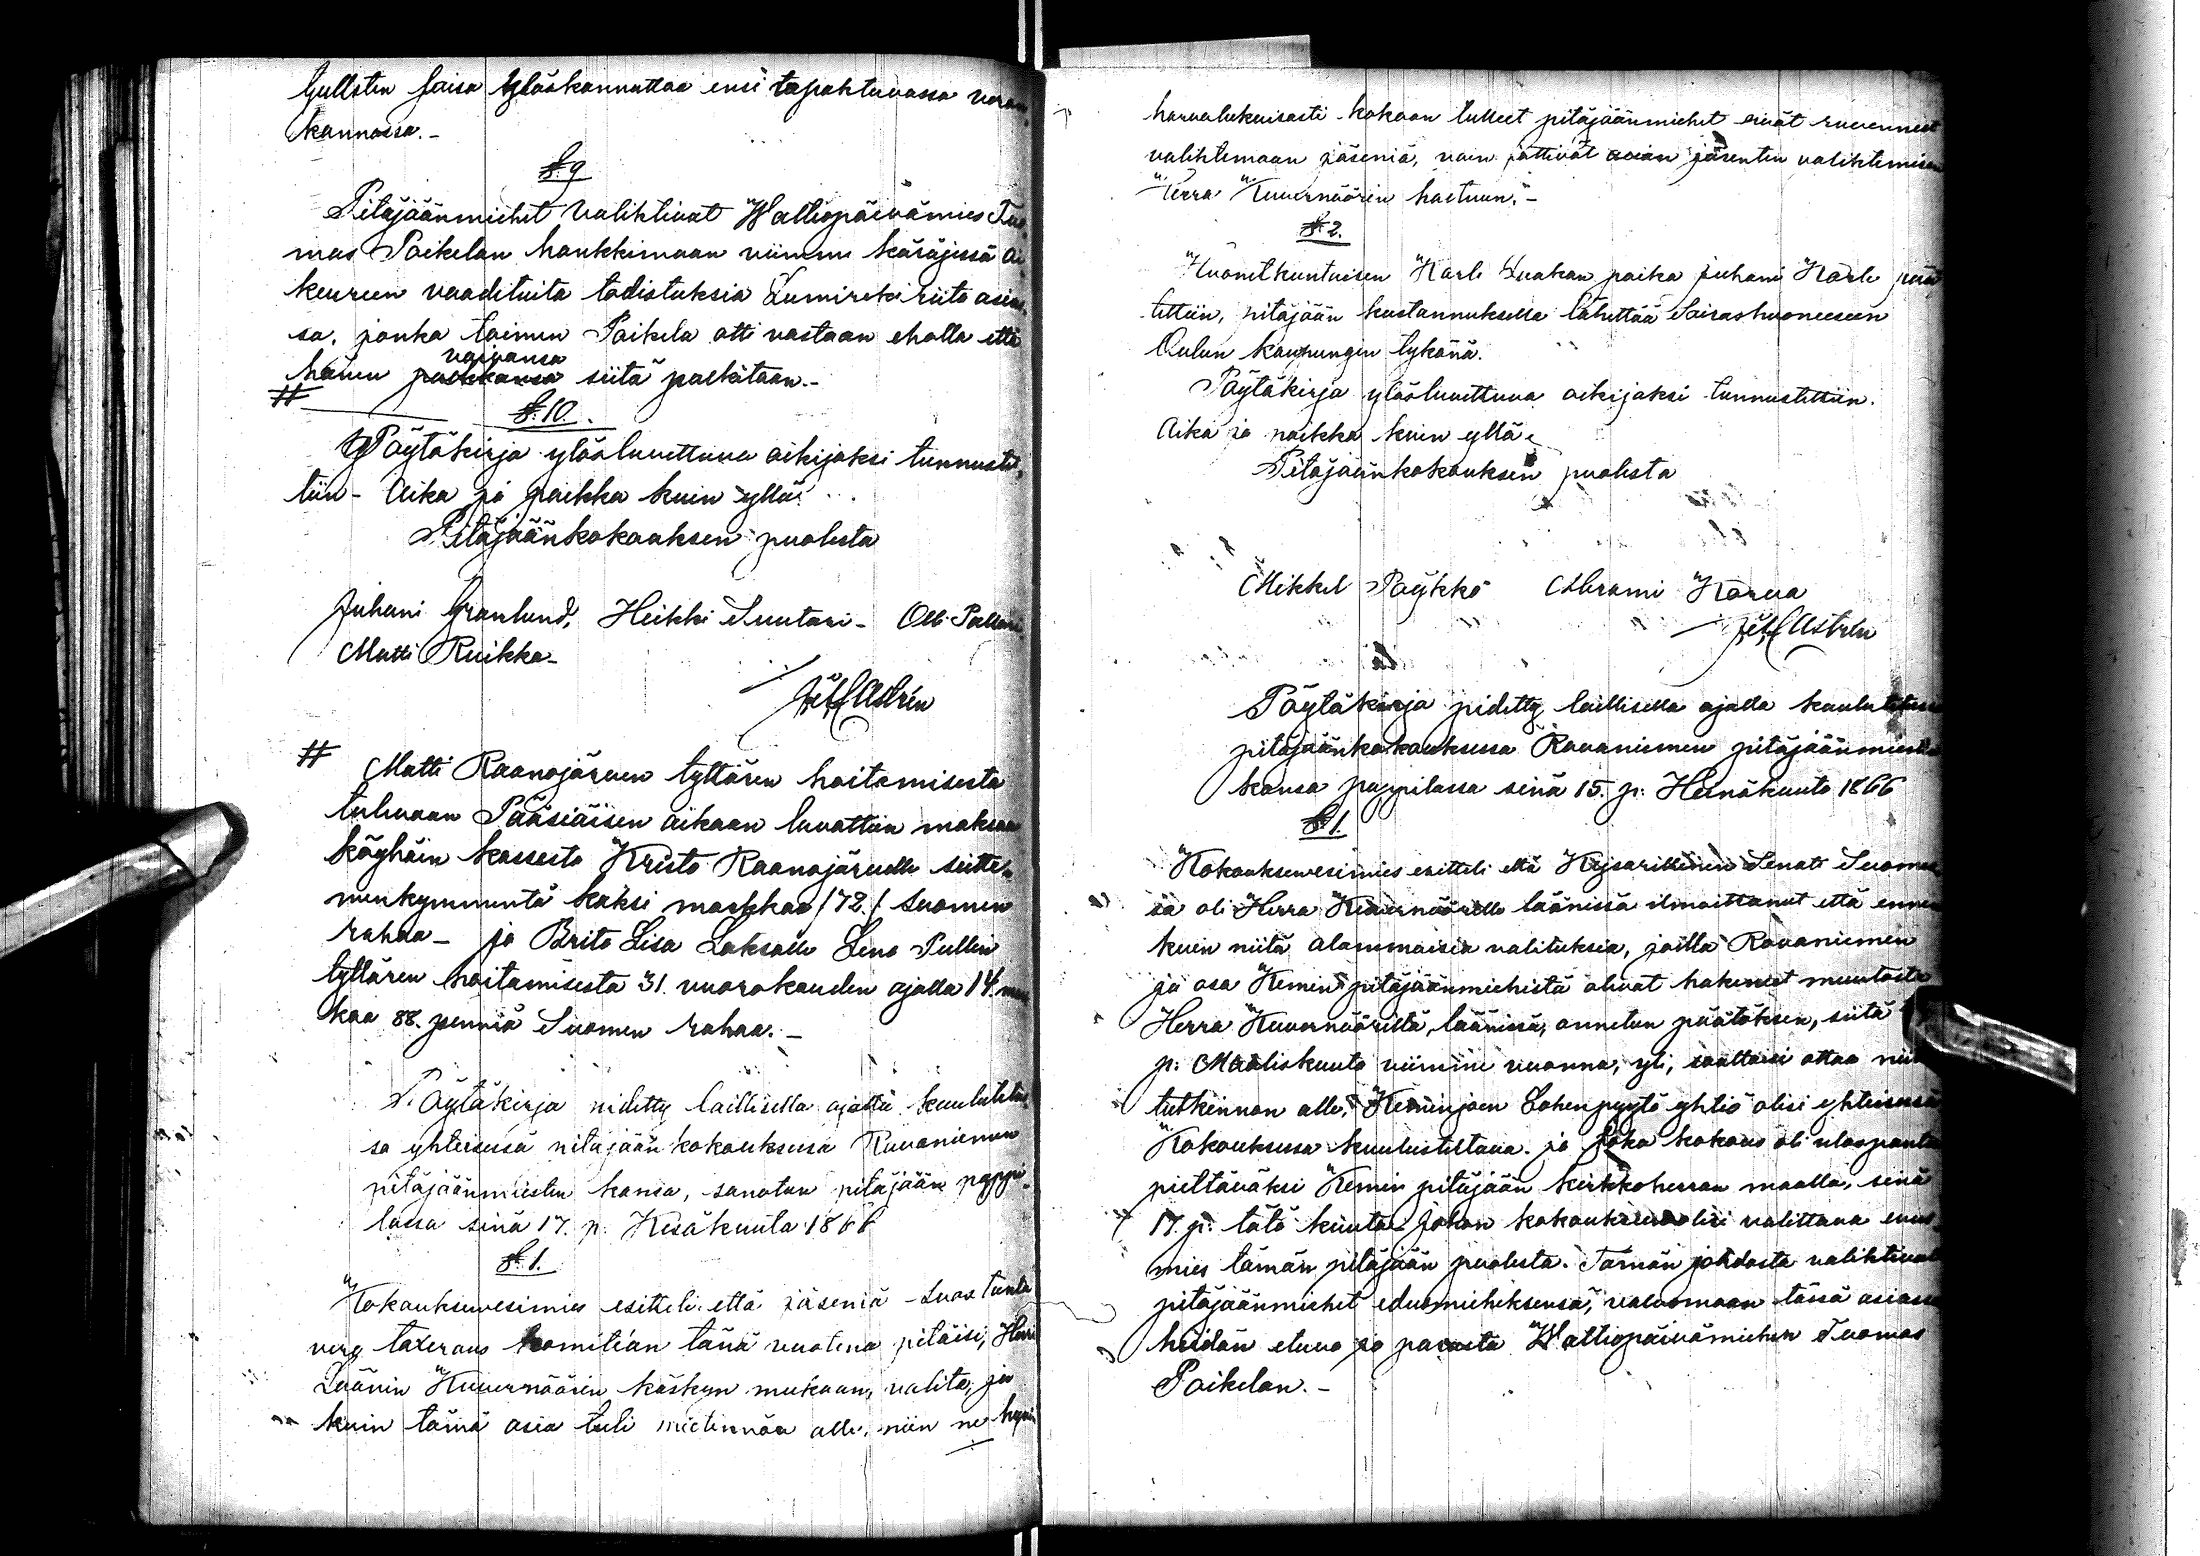 saisa ylöskannattaa ensi tapahtuvassa veron
kannossa.-
§. 9
Pitäjäänmiehet valihtivat Waltiopäivämies Tuo
mas Paikelan hankkimaan viimme käräjissä
vaadituita todistuksia Lumireki riita asias
sa, jonka toimen Paikela otti vastaan eholla että
hänen vaivansa siitä palkitaan.-
#
§. 10.
Pöytäkirja ylösluvettuna oikijaksi tunnustet
tiin - Aika ja paikka kuin yllä.
Pitäjäänkokouksen puolesta
Juhani Granlund. Heikki Suutari - Olli
Matti Ruikka -
# Matti Raanojärven tyttären hoitamisesta
tulevaan Pääsiäisen aikaan luvattiin maksaa
köyhäin kassasta Kristo Raanojärvelle seitte
menkymmentä kaksi markkaa /72./ Suomen
rahaa - ja Brita Lisa Laksolle Lena Pullin
tyttären hoitamisesta 31. vuorokauden ajalla 14. mar
kaa 88. penniä Suomen rahaa. -
Pöytäkirja pidetty laillisella ajalla kuulutetus
sa yhteisessä pitäjään kokouksessa Rovaniemen
pitäjäänmiesten kansa, sanotun pitäjään pappi
lassa sinä 17. p. Kesäkuuta 1866
§. 1.
Kokouksenesimies esitteli että jäseniä suostunta
vero taxeraus komitéan tänä vuotena pitäisi, Herra
Läänin Kuvernöörin käskyn mukaan, valita, ja
kuin tämä asia tuli mietinnön alle, niin ne hyvin
harvalukuisasti kokoon tulleet pitäjäänmiehet eivät ruvenneet
valihtemaan jäseniä, vain jättivät asian jäsenten valihtemisen
Herra Kuvernöörin haltuun. -
§. 2.
Huonetkuntaisen Karle poika Juhani Karle pää
tettiin, pitäjään kustannuksella lähettää Sairashuoneeseen
Oulun kaupungin tykönä.
Pöytäkirja ylösluvettuna oikijaksi tunnustettiin.
Aika ja paikka kuin yllä
Pitäjäänkokouksen puolesta
Mikkel Pöykkö Abrami Korva
Pöytäkirja pidetty laillisella ajalla kuulutetussa
pitäjäänkokouksessa Rovaniemen pitäjäänmiesten
kansa pappilassa sinä 15. p: Heinäkuuta 1866
§ 1.
Kokouksenesimies esitteli että Keisarillinen Senati Suomes
sa oli Herra Kuvernöörille läänissä ilmoittanut että ennen
kuin niitä alammaisia valituksia, joilla Rovaniemen
ja osa Kemin pitäjäänmiehistä olivat hakeneet muutosta
Herra Kuvernööriltä, läänissä, annetun päätöksen, siitä
p: Maaliskuuta viimme vuonna, yli, saattaisi ottaa niin
tutkinnon alle, Keminjoen Lohenpyytö yhtiö olisi yhteisessä
Kokouksessa kuulusteltava. ja joka kokous oli ulospantu
piettäväksi Kemin pitäjään kirkkoherran maalla, sinä
17. p: tätä kuuta johon kokoukseen olisi valittava edus
mies tämän pitäjään puolesta. Tämän johdosta valihtivat
pitäjäänmiehet edusmieheksensä, valvomaan tässä asiassa
heidän etuva ja parasta Waltiopäivämiehen Tuomas
Paikelan. -